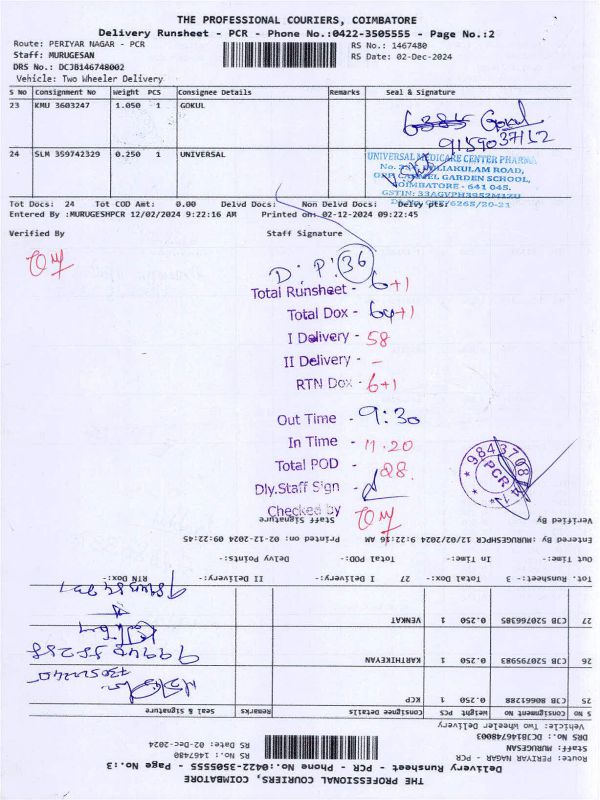 THE PROFESSIONAL COURIERS, COIMBATORE
Delivery Runsheet - PCR - Phone No.:0422-3505555 - Page No.:2
Route: PERIYAR NAGAR - PCR
RS No.: 1467480
Staff: MURUGESAN
RS Date: 02-Dec-2024
DRS No.: DCJB146748002
Vehicle: Two Wheeler Delivery
S No Consignment No Weight PCS Consignee Details Remarks Seal & Signature
23 KMU 3603247 1.050 1 GOKUL
6385 Gokul
9159037152
24 SLM 359742329 0.250 1 UNIVERSAL
UNIVERSAL MEDICARE CENTER PHARMA
PULIAKULAM ROAD,
GARDEN SCHOOL,
COIMBATORE - 641 045.
Tot Docs: 24 Tot COD Amt: 0.00 Delvd Docs: Non Delvd Docs: Delvy pts:
Entered By :MURUGESHPCR 12/02/2024 9:22:16 AM Printed on: 02-12-2024 09:22:45
Verified By Staff Signature
D: P: 36
Total Runsheet - 6+1
Total Dox - 64+1
I Delivery - 58
II Delivery - -
RTN Dox - 6+1
Out Time - 9:30
In Time - 11.20
Total POD - 28.
Dly.Staff Sign -
Checked by
PCR
THE PROFESSIONAL COURIERS, COIMBATORE
Delivery Runsheet - PCR - Phone No.:0422-3505555 - Page No.:3
Route: PERIYAR NAGAR - PCR
RS No.: 1467480
Staff: MURUGESAN
RS Date: 02-Dec-2024
DRS No.: DCJB146748003
Vehicle: Two Wheeler Delivery
S No Consignment No Weight PCS Consignee Details Remarks Seal & Signature
25 CJB 80661288 0.250 1 KCP
26 CJB 520795983 0.250 1 KARTHIKEYAN
27 CJB 520766385 0.250 1 VENKAT
Tot. Runsheet:- 3 Total Dox:- 27 I Delivery:- II Delivery:- RTN Dox:-
Out Time:- In Time:- Total POD:- Delvy Points:-
Entered By :MURUGESHPCR 12/02/2024 9:22:16 AM Printed on: 02-12-2024 09:22:45
Verified By Staff Signature